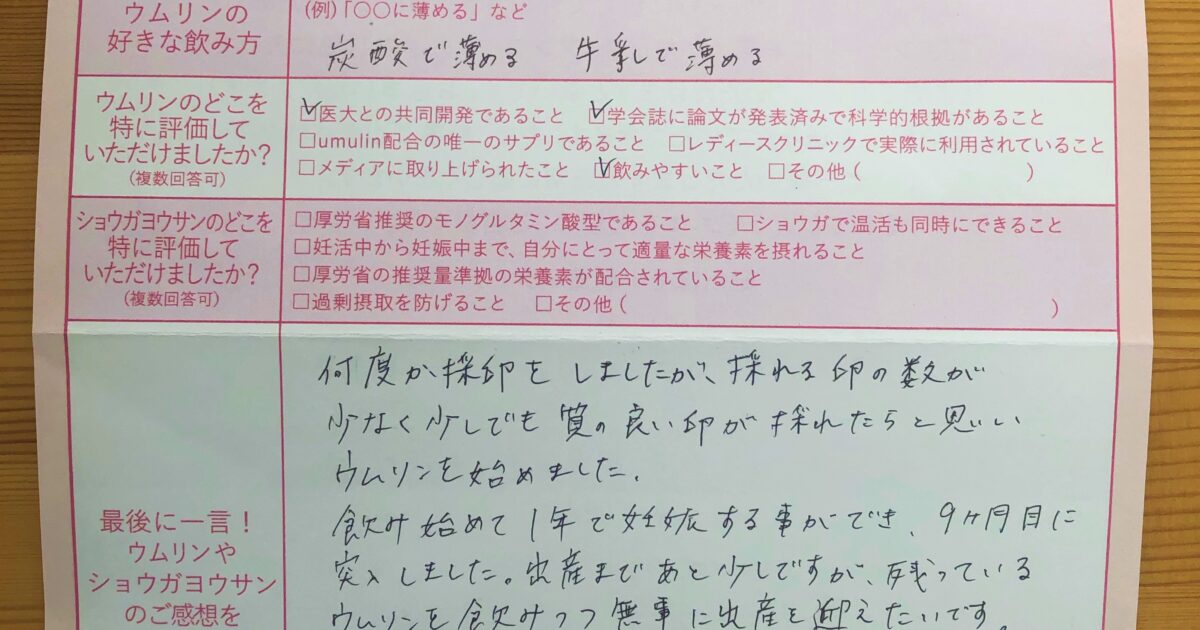 ウムリンの
好きな飲み方
(例)「〇〇に薄める」など
炭酸で薄める　牛乳で薄める
ウムリンのどこを
特に評価して
いただけましたか？
(複数回答可)
☑医大との共同開発であること　☑学会誌に論文が発表済みで科学的根拠があること
□umulin配合の唯一のサプリであること　□レディースクリニックで実際に利用されていること
□メディアに取り上げられたこと　☑飲みやすいこと　□その他（　　　　　　　　）
ショウガヨウサンのどこを
特に評価して
いただけましたか？
(複数回答可)
□厚労省推奨のモノグルタミン酸型であること　□ショウガで温活も同時にできること
□妊活中から妊娠中まで、自分にとって適量な栄養素を摂れること
□厚労省の推奨量準拠の栄養素が配合されていること
□過剰摂取を防げること　□その他（　　　　　　　　　　　　　　　　　　　　）
最後に一言！
ウムリンや
ショウガヨウサン
のご感想を
何度か採卵をしましたが、採れる卵の数が
少なく少しでも質の良い卵が採れたらと思い
ウムリンを始めました。
飲み始めて1年で妊娠する事ができ、9ヶ月目に
突入しました。出産まであと少しですが、残っている
ウムリンを飲みつつ無事に出産を迎えたいです。